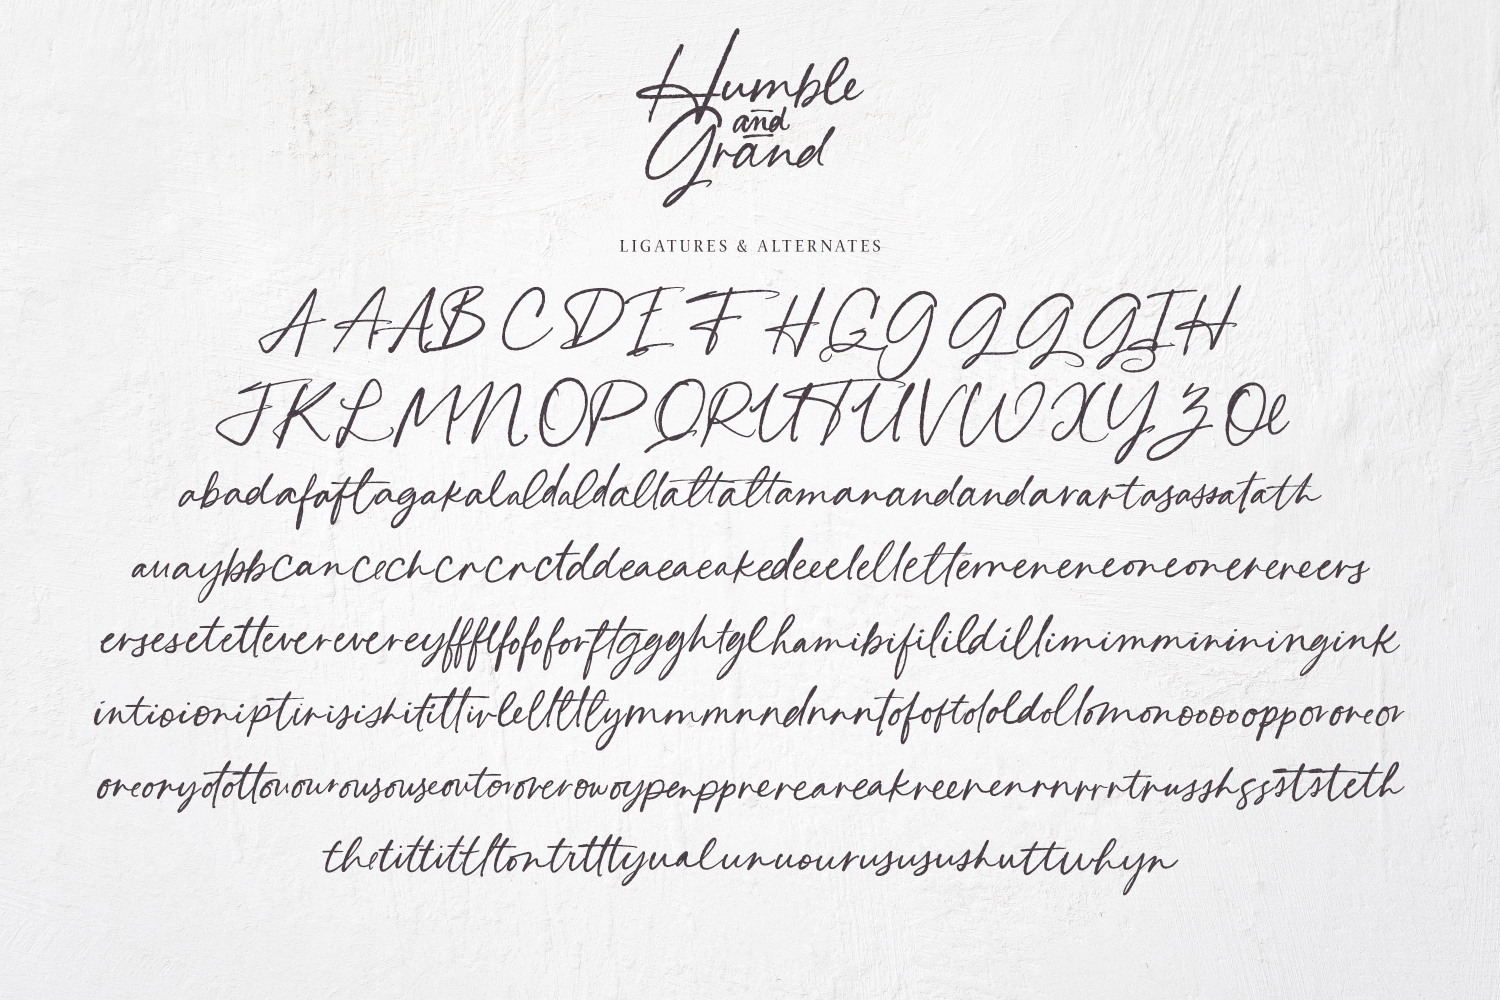 Humble
and
Grand
LIGATURES & ALTERNATES
A A A B C D E F H G G G G G I H
J K L M N O P Q R U T U V W X Y Z O e
abadafaftagakalaldaldallattaltamanandandavartasassatath
auaybbcancechcrcrctddeaeaeakedeeelellettemeneneoneonerereers
ersesetettevereverreyffflfofoforftggghtglhamibifilildillimimmininingink
intioioniptirisishitittivlellltlymmmnndnnntofoftololdollomonooooopporoneor
oreoryotottouourousouseoutoroverowoypenpprereareakreerenrnrrrtrusshgssststeth
thetittittltontrtttyualunuourusususshuttwhyn